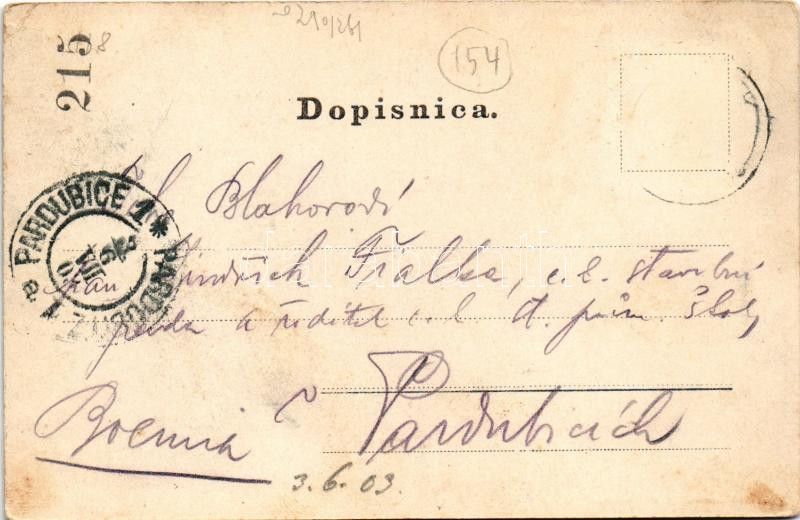 215
8
154
Dopisnica.
PARDUBICE 1 * PARDUBITZ 1 a
Blahorodí
pan Jindřich Fialka, c. k. stavební
rada a ředitel c. k. st. prům. školy
v Pardubicích
Boemia
3.6.03.